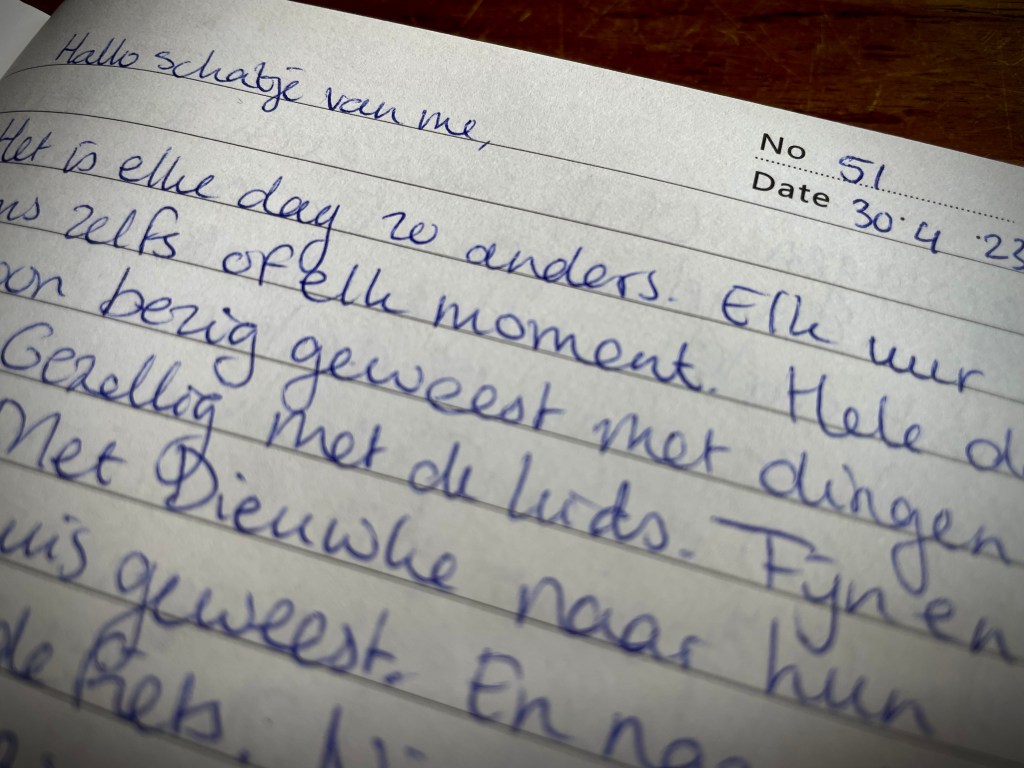 Hallo schatje van me,
No 51
Date 30.4.23
Het is elke dag zo anders. Elk uur
zelfs of elk moment. Hele
bezig geweest met dingen
Gezellig met de kids. Fijn en
Met Dieuwke naar hun
geweest. En
de fiets.